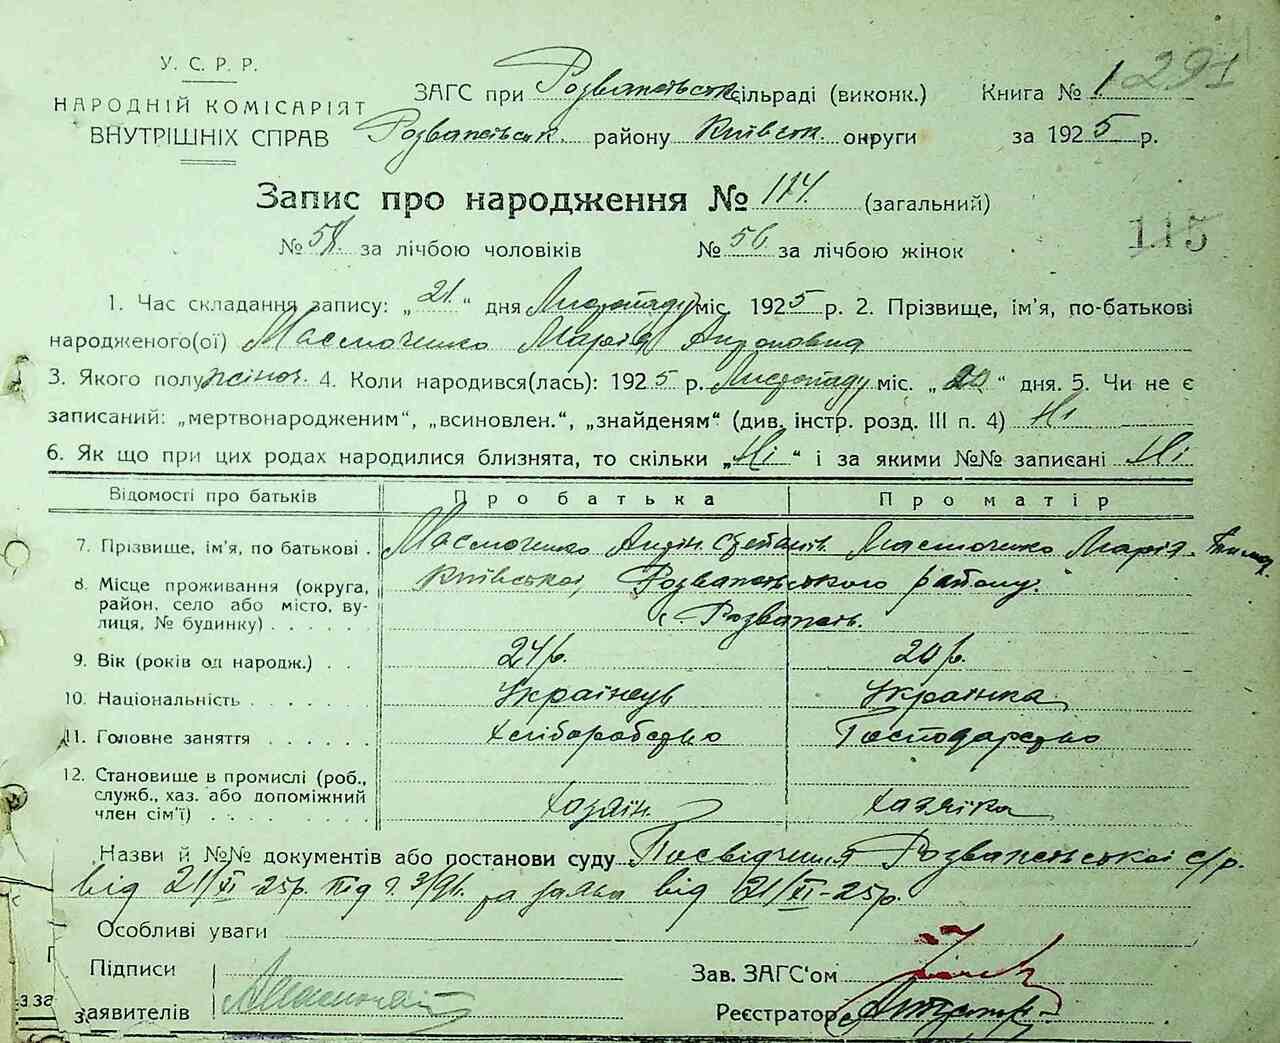 У. С. Р. Р.
НАРОДНІЙ КОМІСАРІЯТ
ВНУТРІШНІХ СПРАВ
ЗАГС при Розважівськ. сільраді (виконк.) Книга № 1 291
Розважівськ. району Київськ. округи за 1925 р.
Запис про народження № 114. (загальний)
115
№ 58. за лічбою чоловіків № 56. за лічбою жінок
1. Час складання запису: „21.“ дня Листопаду міс. 1925 р. 2. Прізвище, ім'я, по-батькові
народженого(ої) Масмоченко Марія
3. Якого полу жіноч. 4. Коли народився(лась): 1925 р. Листопаду міс. „20“ дня. 5. Чи не є
записаний: „мертвонародженим“, „всиновлен.“, „знайденям“ (див. інстр. розд. III п. 4) Ні
6. Як що при цих родах народилися близнята, то скільки „Ні“ і за якими №№ записані Ні
Відомості про батьків Про батька Про матір
7. Прізвище, ім'я, по батькові . Масмоченко Степанів. Масмоченко Марія
8. Місце проживання (округа, район, село або місто, вулиця, № будинку) . . . . . Київської, Розважівського району.
с. Розважів.
9. Вік (років од народж.) . . 24 р. 20 р.
10. Національність . . . . . . . Українець Українка
11. Головне заняття . . . . . . Хліборобство Господарство
12. Становище в промислі (роб., служб., хаз. або допоміжний член сім'ї) . . . . . . . . Хазяїн. Хазяйка
Назви й №№ документів або постанови суду Посвідчення Розважівської с/р.
від 21/XI-25р. під ч. 3/91. та заява від 21/XI-25р.
Особливі уваги
Підписи
заявителів
Зав. ЗАГС'ом
Реєстратор